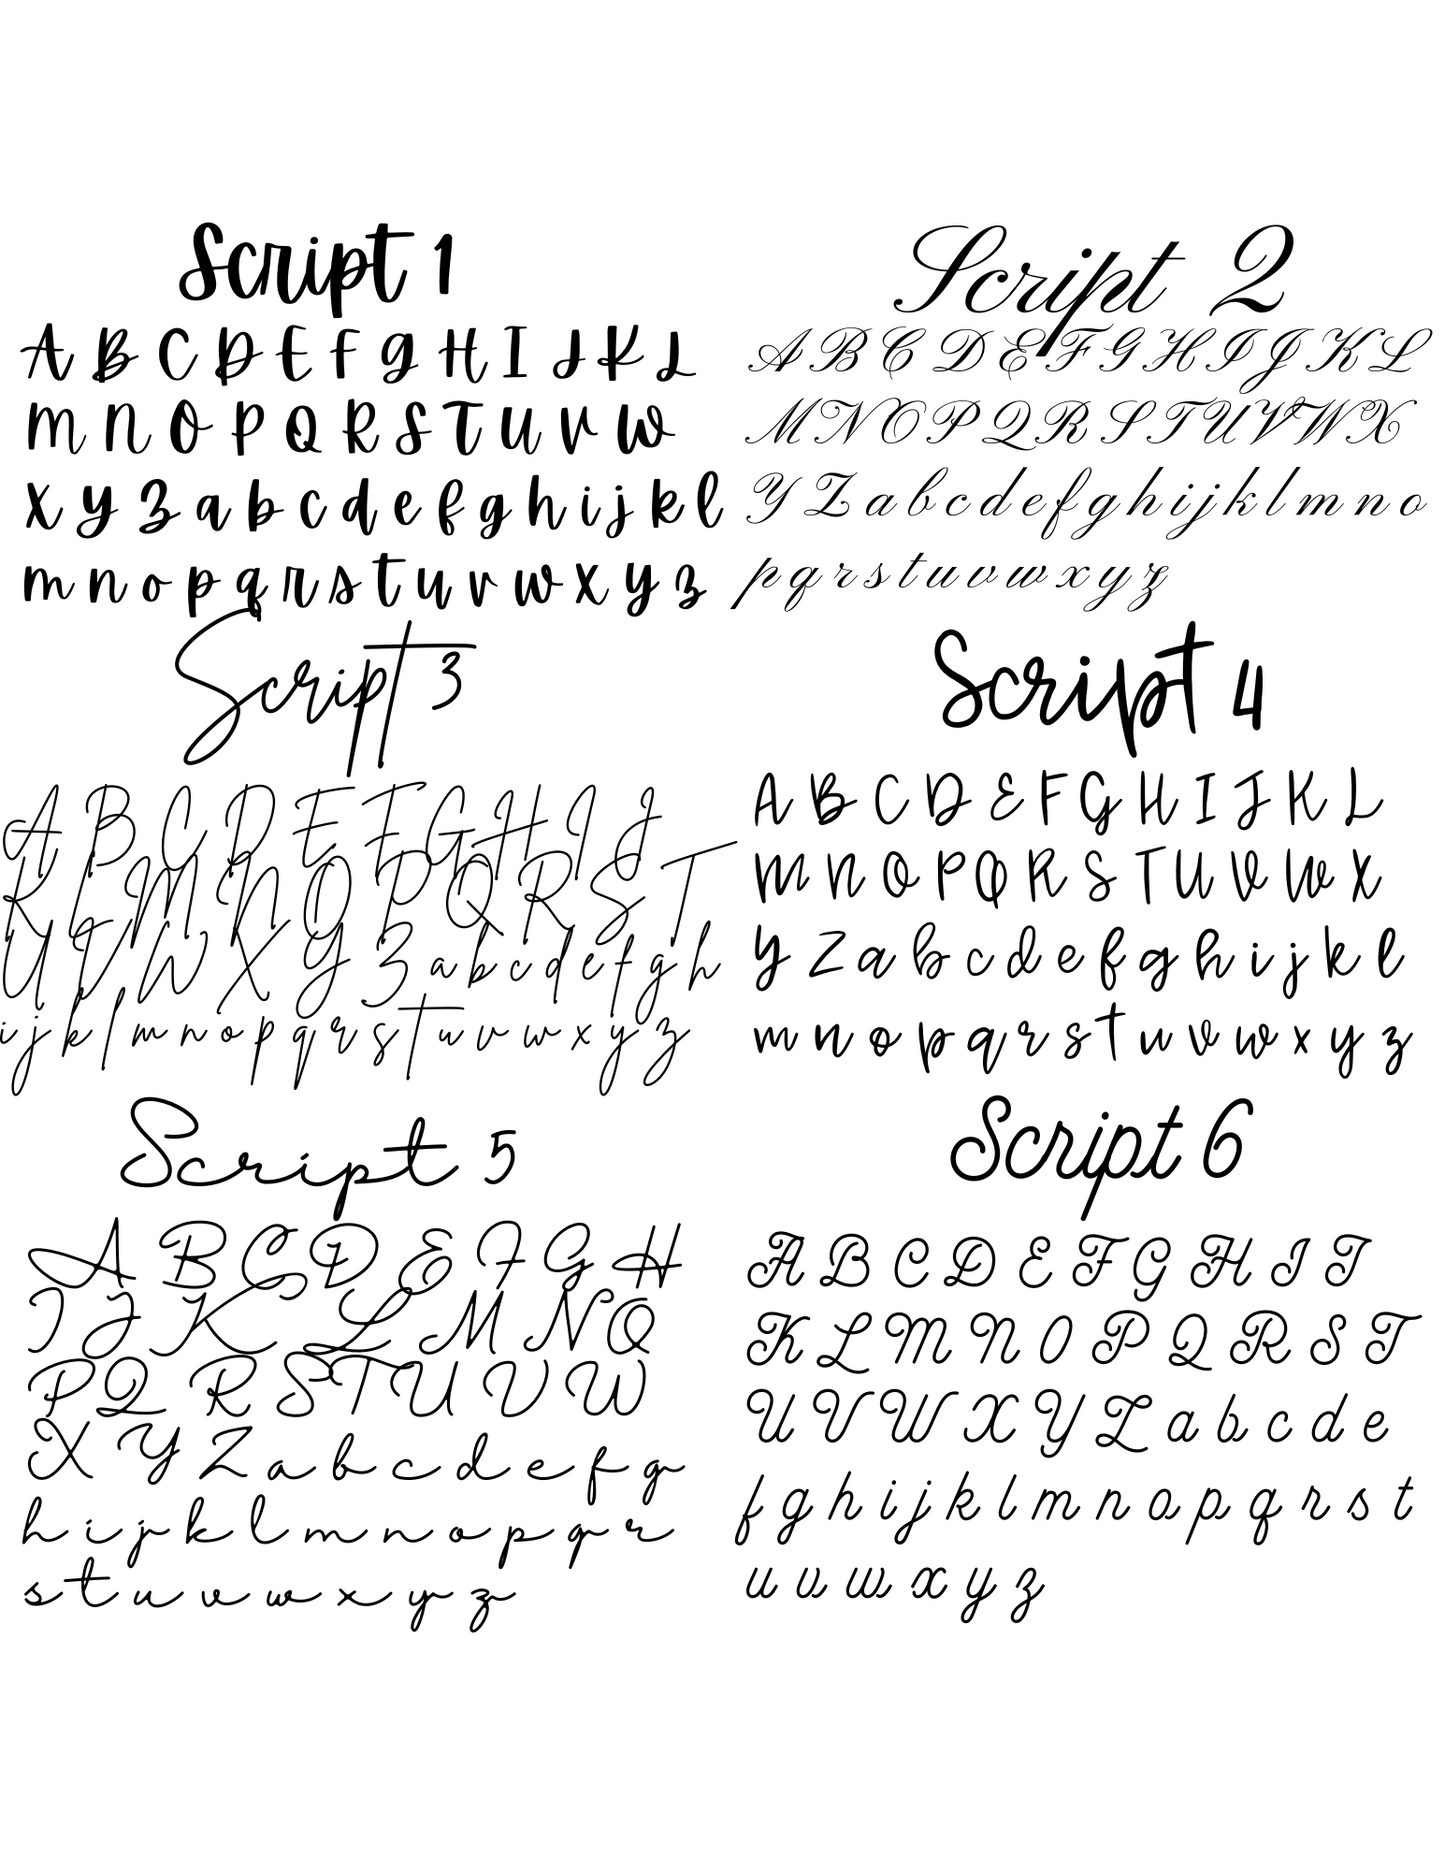 Script 1
A B C D E F G H I J K L
M N O P Q R S T U V W
X Y Z a b c d e f g h i j k l
m n o p q r s t u v w x y z
Script 2
A B C D E F G H I J K L
M N O P Q R S T U V W X
Y Z a b c d e f g h i j k l m n o
p q r s t u v w x y z
Script 3
A B C D E F G H I J
K L M N O P Q R S T
U V W X Y Z a b c d e f g h
i j k l m n o p q r s t u v w x y z
Script 4
A B C D E F G H I J K L
M N O P Q R S T U V W X
Y Z a b c d e f g h i j k l
m n o p q r s t u v w x y z
Script 5
A B C D E F G H
I J K L M N O
P Q R S T U V W
X Y Z a b c d e f g
h i j k l m n o p q r
s t u v w x y z
Script 6
A B C D E F G H I J
K L M N O P Q R S T
U V W X Y Z a b c d e
f g h i j k l m n o p q r s t
u v w x y z